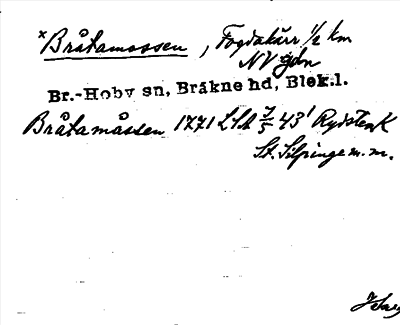 ×Bråtamossen, Fogdakärr ½ km
NV gdn
Br.-Hoby sn, Bräkne hd, Blek.l.
Bråtamåssen 1771 LSA 7/5 43' Rydstenk
St. Silpinge m.m.